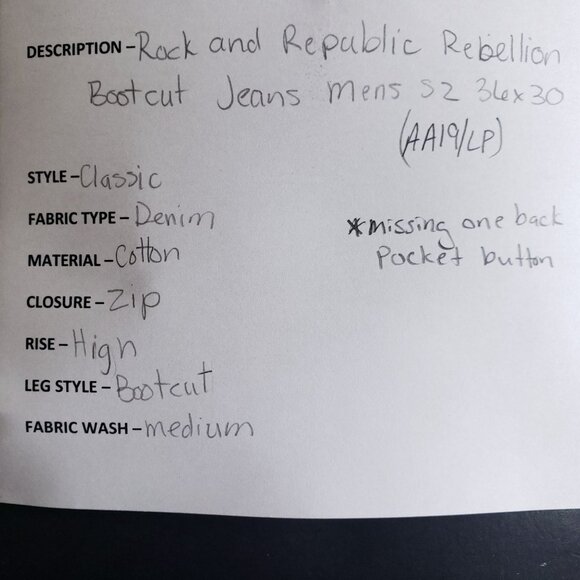 DESCRIPTION - Rock and Republic Rebellion
Bootcut Jeans Mens SZ 36x30
(AA19/LP)
STYLE - Classic
FABRIC TYPE - Denim
*missing one back
Pocket button
MATERIAL - Cotton
CLOSURE - Zip
RISE - High
LEG STYLE - Bootcut
FABRIC WASH - medium